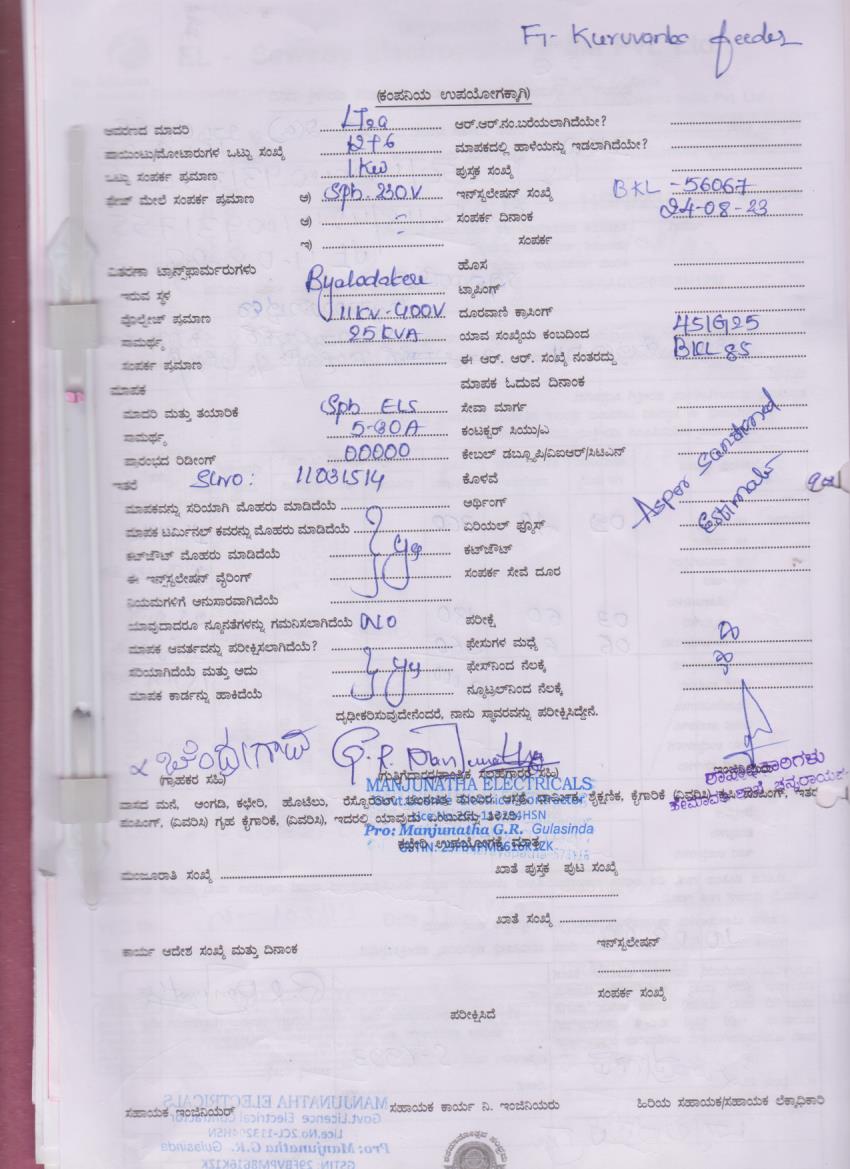 F7- Kuruvanka feeder
(ಕಂಪನಿಯ ಉಪಯೋಗಕ್ಕಾಗಿ)
ಆವರಣದ ಮಾದರಿ LT2a ಆರ್.ಆರ್.ನಂ.ಬರೆಯಲಾಗಿದೆಯೇ?
ಪಾಯಿಂಟು/ಮೋಟಾರುಗಳ ಒಟ್ಟು ಸಂಖ್ಯೆ ಮಾಪಕದಲ್ಲಿ ಹಾಳೆಯನ್ನು ಇಡಲಾಗಿದೆಯೇ?
ಒಟ್ಟು ಸಂಪರ್ಕ ಪ್ರಮಾಣ 1 KW ಪುಸ್ತಕ ಸಂಖ್ಯೆ
ಫೇಜ್ ಮೇಲೆ ಸಂಪರ್ಕ ಪ್ರಮಾಣ ಅ) Sph 230V ಇನ್‌ಸ್ಟಲೇಷನ್ ಸಂಖ್ಯೆ BKL-56067
ಆ) ಸಂಪರ್ಕ ದಿನಾಂಕ 24-08-23
ಇ) ಸಂಪರ್ಕ
ವಿತರಣಾ ಟ್ರಾನ್ಸ್‌ಫಾರ್ಮರುಗಳು ಹೊಸ
ಇರುವ ಸ್ಥಳ Byaladakere ಟ್ಯಾಪಿಂಗ್
ವೋಲ್ಟೇಜ್ ಪ್ರಮಾಣ 11KV-400V ದೂರವಾಣಿ ಕ್ರಾಸಿಂಗ್
ಸಾಮರ್ಥ್ಯ 25 KVA ಯಾವ ಸಂಖ್ಯೆಯ ಕಂಬದಿಂದ 451G25
ಸಂಪರ್ಕ ಪ್ರಮಾಣ ಈ ಆರ್. ಆರ್. ಸಂಖ್ಯೆ ನಂತರದ್ದು BKL 85
ಮಾಪಕ ಮಾಪಕ ಓದುವ ದಿನಾಂಕ
ಮಾದರಿ ಮತ್ತು ತಯಾರಿಕೆ Sph ELS ಸೇವಾ ಮಾರ್ಗ
ಸಾಮರ್ಥ್ಯ 5-30A ಕಂಟಕ್ಟರ್ ಸಿಯು/ಎ
ಪ್ರಾರಂಭದ ರಿಡೀಂಗ್ 00000 ಕೇಬಲ್ ಡಬ್ಲ್ಯೂಪಿ/ವಿಐಆರ್/ಸಿಟಿಎನ್
ಇತರೆ Slno: 11031514 ಕೊಳವೆ
As per Sanctioned Estimate
ಮಾಪಕವನ್ನು ಸರಿಯಾಗಿ ಮೊಹರು ಮಾಡಿದೆಯೆ ಅರ್ಥಿಂಗ್
ಮಾಪಕ ಟರ್ಮಿನಲ್ ಕವರನ್ನು ಮೊಹರು ಮಾಡಿದೆಯೆ ಏರಿಯಲ್ ಫ್ಯೂಸ್
ಕಟ್‌ಔಟ್ ಮೊಹರು ಮಾಡಿದೆಯೆ yes ಕಟ್‌ಔಟ್
ಈ ಇನ್‌ಸ್ಟಲೇಷನ್ ವೈರಿಂಗ್ ಸಂಪರ್ಕ ಸೇವೆ ದೂರ
ನಿಯಮಗಳಿಗೆ ಅನುಸಾರವಾಗಿದೆಯೆ
ಯಾವುದಾದರೂ ನ್ಯೂನತೆಗಳನ್ನು ಗಮನಿಸಲಾಗಿದೆಯೆ NO ಪರೀಕ್ಷೆ
ಮಾಪಕ ಆವರ್ತವನ್ನು ಪರೀಕ್ಷಿಸಲಾಗಿದೆಯೆ? ಫೇಸುಗಳ ಮಧ್ಯೆ
ಸರಿಯಾಗಿದೆಯೆ ಮತ್ತು ಅದು yes ಫೇಸ್‌ನಿಂದ ನೆಲಕ್ಕೆ
ಮಾಪಕ ಕಾರ್ಡನ್ನು ಹಾಕಿದೆಯೆ ನ್ಯೂಟ್ರಲ್‌ನಿಂದ ನೆಲಕ್ಕೆ
ದೃಢೀಕರಿಸುವುದೇನೆಂದರೆ, ನಾನು ಸ್ಥಾವರವನ್ನು ಪರೀಕ್ಷಿಸಿದ್ದೇನೆ.
G.R. Manjunatha
(ಗ್ರಾಹಕರ ಸಹಿ) (ಗುತ್ತಿಗೆದಾರರ/ತಾಂತ್ರಿಕ ಸಲಹೆಗಾರರ ಸಹಿ) ಇಂಜಿನಿಯರು
ಶಾಖಾಧಿಕಾರಿಗಳು
MANJUNATHA ELECTRICALS
Govt.Licence Electrical Contractor
ವಾಸದ ಮನೆ, ಅಂಗಡಿ, ಕಛೇರಿ, ಹೊಟೇಲು, ಶೈಕ್ಷಣಿಕ, ಕೈಗಾರಿಕೆ (ವಿವರಿಸಿ) ಕೃಷಿ ಪಂಪಿಂಗ್, ಇತರೆ
ಪಂಪಿಂಗ್, (ವಿವರಿಸಿ) ಗೃಹ ಕೈಗಾರಿಕೆ, (ವಿವರಿಸಿ), ಇದರಲ್ಲಿ ಯಾವುದು
Pro: Manjunatha G.R. Gulasinda
ಕಛೇರಿ ಉಪಯೋಗಕ್ಕೆ ಮಾತ್ರ
GSTIN: 29FBVPM8616K1ZK
ಮಂಜೂರಾತಿ ಸಂಖ್ಯೆ ಖಾತೆ ಪುಸ್ತಕ ಪುಟ ಸಂಖ್ಯೆ
ಖಾತೆ ಸಂಖ್ಯೆ
ಕಾರ್ಯ ಆದೇಶ ಸಂಖ್ಯೆ ಮತ್ತು ದಿನಾಂಕ ಇನ್‌ಸ್ಟಲೇಷನ್
ಸಂಪರ್ಕ ಸಂಖ್ಯೆ
ಪರೀಕ್ಷಿಸಿದೆ
ಸಹಾಯಕ ಇಂಜಿನಿಯರ್ ಸಹಾಯಕ ಕಾರ್ಯ ನಿ. ಇಂಜಿನಿಯರು ಹಿರಿಯ ಸಹಾಯಕ/ಸಹಾಯಕ ಲೆಕ್ಕಾಧಿಕಾರಿ